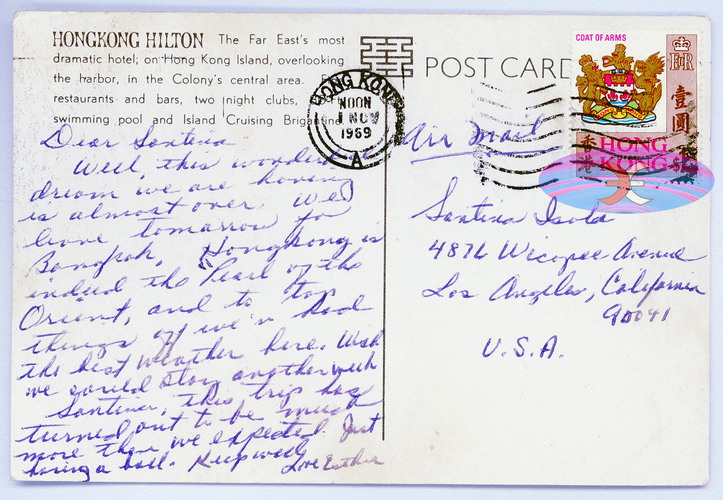 HONGKONG HILTON The Far East's most
dramatic hotel; on Hong Kong Island, overlooking
the harbor, in the Colony's central area.
restaurants and bars, two night clubs,
swimming pool and Island Cruising Brigantine
POST CARD
HONG KONG
NOON
1 NOV
1969
A
COAT OF ARMS
E R
壹
圓
香
港
HONG
KONG
Air Mail
Dear Santina
Well, this wonderful
dream we are having
is almost over. We
leave tomorrow for
Bangkok. Hongkong is
indeed the Pearl of the
Orient, and to top
things off we'v had
the best weather here. Wish
we could stay another week
Santina, this trip has
turned out to be much
more than we expected. Just
having a ball. Keep well
Love Esther
Santina Isola
4876 Wicopee Avenue
Los Angeles, California
90041
U.S.A.